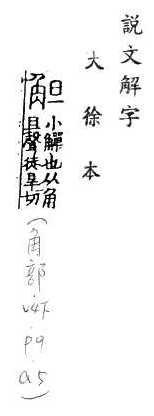 説文解字
大徐本
觛小觶也从角
旦聲徒旱切
(角部 v4下 p9 a5)